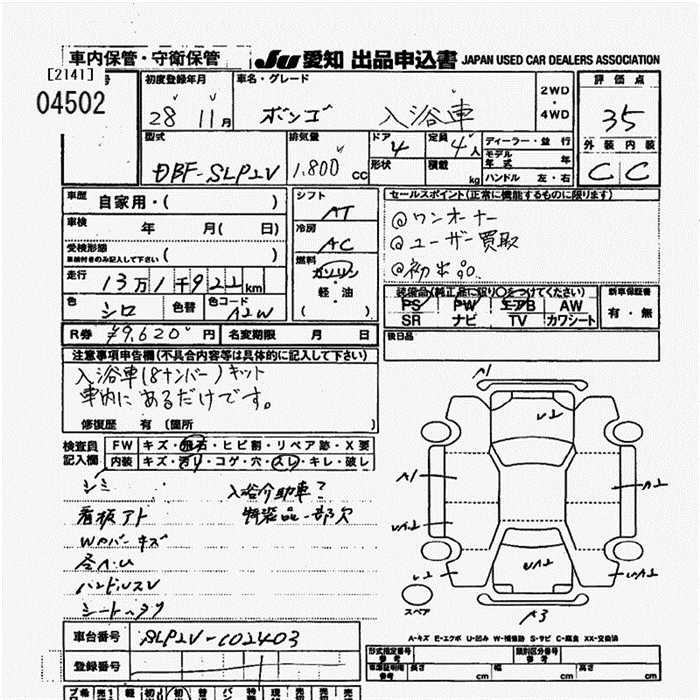 車内保管・守衛保管
JU 愛知 出品申込書 JAPAN USED CAR DEALERS ASSOCIATION
[2141] 号
04502
初度登録年月 28 11月
車名・グレード ボンゴ 入浴車
2WD ・ 4WD
評価点 35
外装 内装
C C
型式 DBF-SLP2V
排気量 1,800 CC
ドア 4
形状
定員 4人
積載 kg
ディーラー・並行
モデル年式 年
ハンドル 左・右
車歴 自家用・( )
車検 年 月( 日)
受検形態 ( )
車検付きのみ記入して下さい
走行 13万1千922km
色 シロ 色替 色コード A2W
シフト AT
冷房 AC
燃料 ガソリン
軽・油
( )
セールスポイント(正常に機能するものに限ります)
@ワンオーナー
@ユーザー買取
@初出品
装備品(純正品に限り○をつけてください)
PS PW エアB AW
SR ナビ TV カワシート
新車保証書
有・無
R券 ¥9,620 円 名変期限 月 日
後日品
注意事項申告欄(不具合内容等は具体的に記入して下さい)
入浴車(8ナンバー)キット
車内にあるだけです。
修復歴 有 (箇所 )
検査員記入欄
FW キズ・飛石・ヒビ割・リペア跡・X要
内装 キズ・汚れ・コゲ・穴・スレ・キレ・破し
シミ 入浴介助車?
看板アト 特装品一部欠
シートヘタリ
A1
A1
A3
スペア
A-キズ E-エクボ U-凹み W-補修跡 S-サビ C-腐食 XX-交換済
車台番号 SLP2V-102403
登録番号
形式指定番号 参考
類別区分番号 参考
車庫証明用 参考 長さ cm 幅 cm 高さ cm